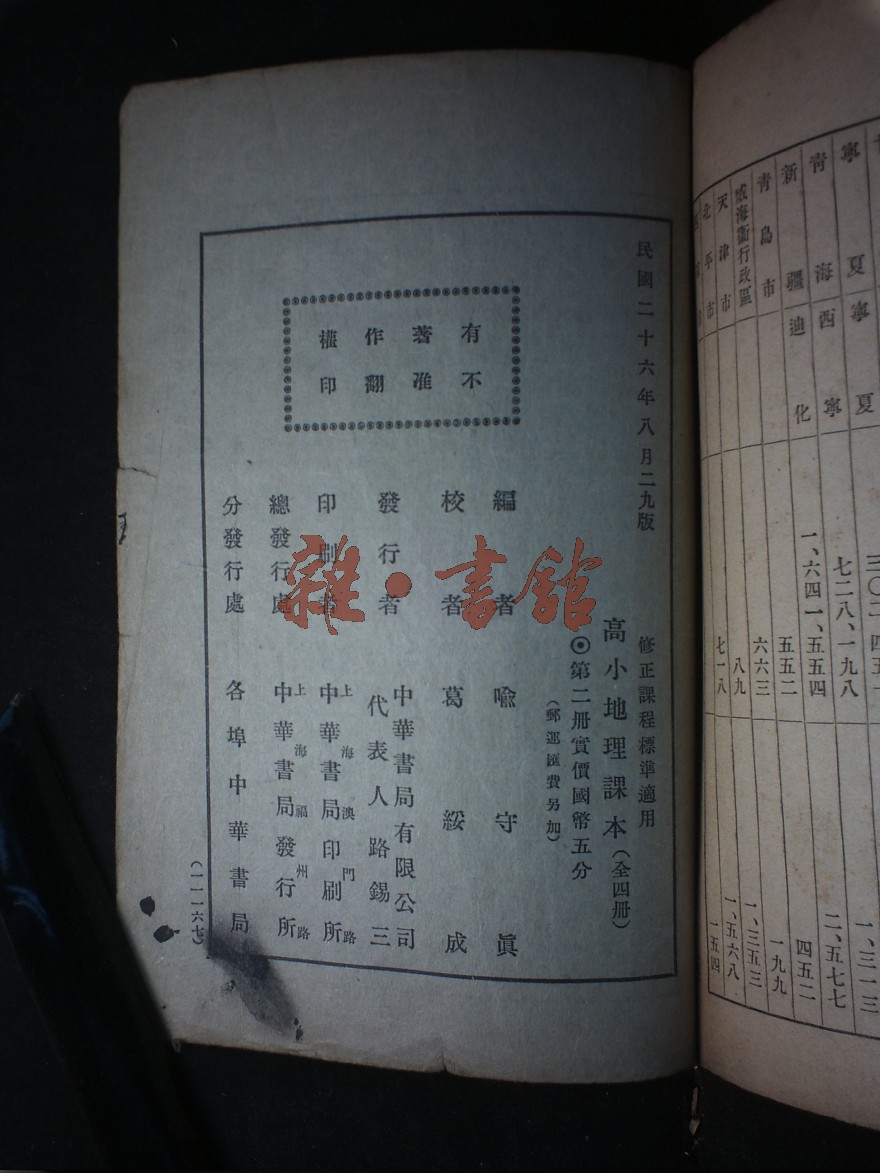 寧夏 寧夏 三〇二
青海 西寧 七二八、一九八 二、五七七
新疆 迪化 一、六四一、五五四 四五二
青島市 五五二 一九九
威海衞行政區 六六三 一、三五三
天津市 八九 一、五六八
北平市 七一八 一五四
民國二十六年八月二九版
修正課程標準適用
高小地理課本(全四册)
⊙第二册實價國幣五分
(郵運匯費另加)
有著作權
不准翻印
編者 喩守眞
校者 葛綏成
發行者 中華書局有限公司
代表人路錫三
印刷者 上海澳門路
中華書局印刷所
總發行處 上海福州路
中華書局發行所
分發行處 各埠中華書局
(一一一六七)
雜·書館